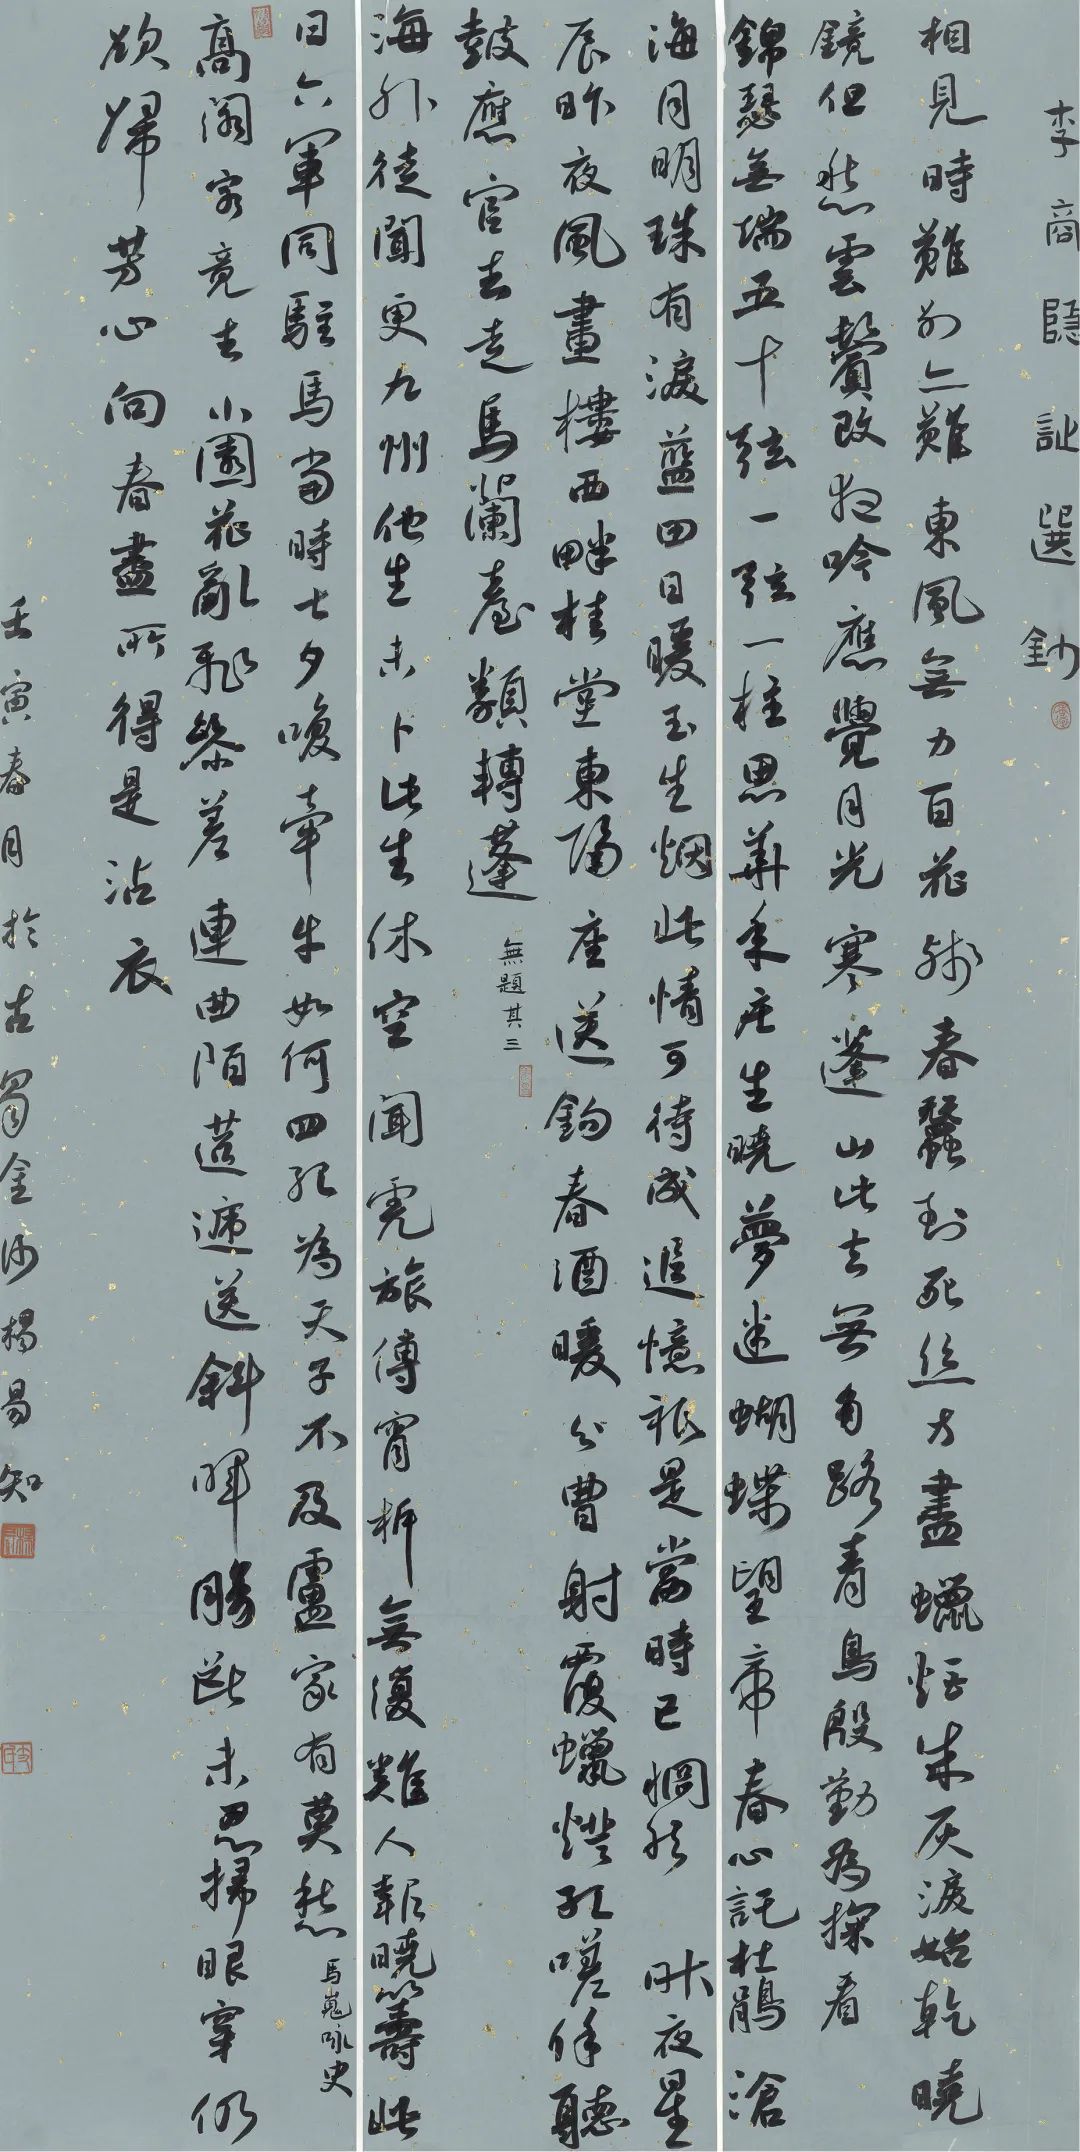 李商隱詩選鈔
相見時難別亦難東風無力百花殘春蠶到死絲方盡蠟炬成灰淚始乾曉
鏡但愁雲鬢改夜吟應覺月光寒蓬山此去無多路青鳥殷勤為探看
錦瑟無端五十弦一弦一柱思華年莊生曉夢迷蝴蝶望帝春心託杜鵑滄
海月明珠有淚藍田日暖玉生烟此情可待成追憶祇是當時已惘然 昨夜星
辰昨夜風畫樓西畔桂堂東隔座送鉤春酒暖分曹射覆蠟燈紅嗟余聽
鼓應官去走馬蘭臺類轉蓬 無題其三
海外徒聞更九州他生未卜此生休空聞虎旅傳宵柝無復雞人報曉籌此
日六軍同駐馬當時七夕笑牽牛如何四紀為天子不及盧家有莫愁 馬嵬詠史
高閣客竟去小園花亂飛參差連曲陌迢遞送斜暉腸斷未忍掃眼穿仍
欲歸芳心向春盡所得是沾衣
壬寅春月於古蜀金沙楊易知